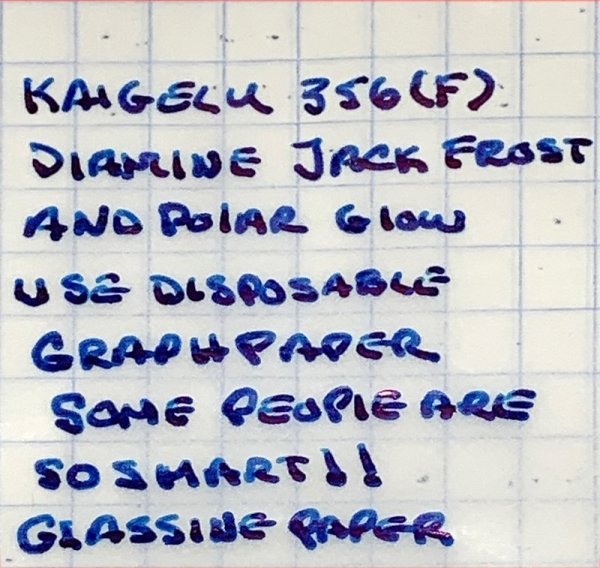 KAIGELU 356(F)
DIAMINE JACK FROST
AND POLAR GLOW
USE DISPOSABLE
GRAPH PAPER
SOME PEOPLE ARE
SO SMART!!
GLASSINE PAPER